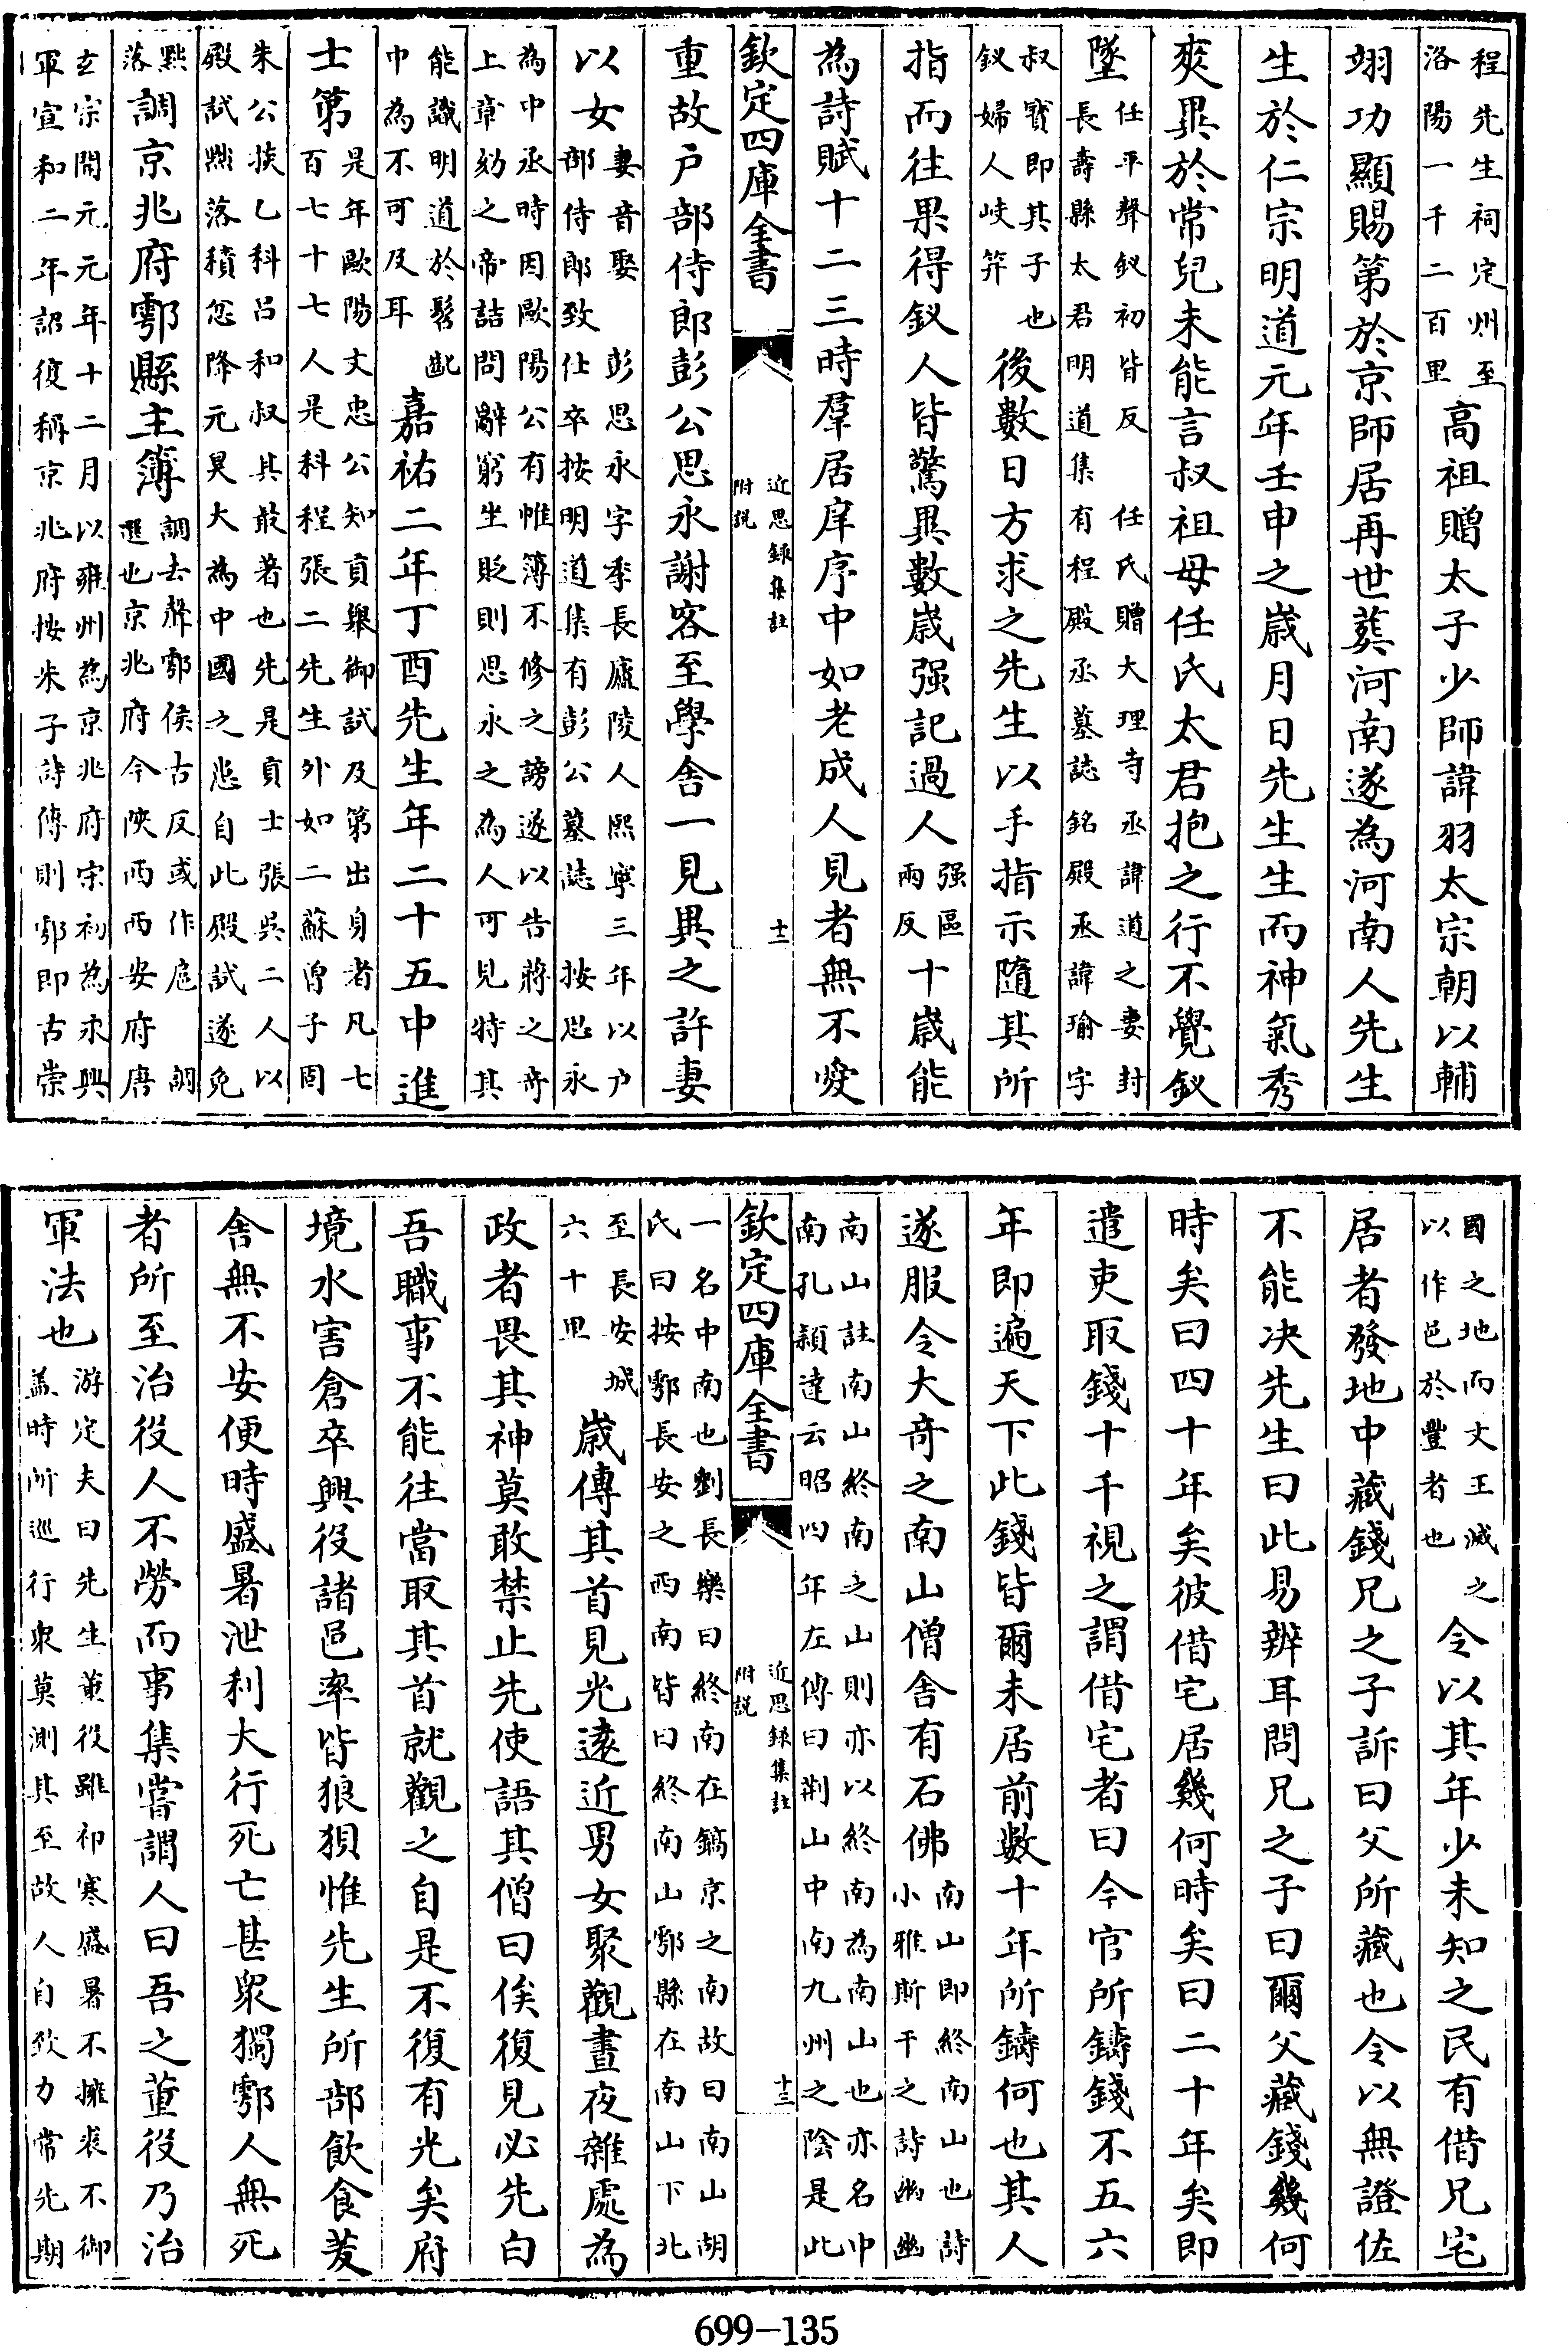 程先生祠定州至洛陽一千二百里高祖贈太子少師諱羽太宗朝以輔
翊功顯賜第於京師居再世葬河南遂為河南人先生
生於仁宗明道元年壬申之歲月日先生生而神氣秀
爽異於常兒未能言叔祖母任氏太君抱之行不覺釵
墜任平聲釵初皆反 任氏贈大理寺丞諱道之妻封長壽縣太君明道集有程殿丞墓誌銘殿丞諱瑜字
叔寳即其子也釵婦人岐筓後數日方求之先生以手指示隨其所
指而往果得釵人皆驚異數歲强記過人强區兩反十歲能
為詩賦十二三時羣居庠序中如老成人見者無不愛
欽定四庫全書 近思録集註附説 十二
重故户部侍郎彭公思永謝客至學舍一見異之許妻
以女妻音娶 彭思永字季長廬陵人熙寧三年以户部侍郎致仕卒按明道集有彭公墓誌 按思永
為中丞時因歐陽公有帷簿不修之謗遂以告蔣之奇上章劾之帝詰問辭窮坐貶則思永之為人可見特其
能識明道於髫齔中為不可及耳嘉祐二年丁酉先生年二十五中進
士第是年歐陽文忠公知貢舉御試及第出身者凡七百七十七人是科程張二先生外如二蘇曾子固
朱公掞乙科吕和叔其最著也先是貢士張吳二人以殿試黜落積忿降元昊大為中國之患自此殿試遂免
黜落調京兆府鄠縣主簿調去聲鄠侯古反或作扈 調選也京兆府今陜西西安府 唐
玄宗開元元年十二月以雍州為京兆府宋初為永興軍宣和二年詔復稱京兆府按朱子詩傳則鄠即古崇
國之地而文王滅之以作邑於豐者也令以其年少未知之民有借兄宅
居者發地中藏錢兄之子訴曰父所藏也令以無證佐
不能决先生曰此易辨耳問兄之子曰爾父藏錢幾何
時矣曰四十年矣彼借宅居幾何時矣曰二十年矣即
遣吏取錢十千視之謂借宅者曰今官所鑄錢不五六
年即遍天下此錢皆爾未居前數十年所鑄何也其人
遂服令大奇之南山僧舍有石佛南山即終南山也 詩小雅斯干之詩幽幽
南山註南山終南之山則亦以終南為南山也亦名中南孔穎達云昭四年左傳曰荆山中南九州之險是此
欽定四庫全書 近思録集註附説 十三
一名中南也劉長樂曰終南在鎬京之南故曰南山胡氏曰按鄠長安之西南皆曰終南山鄠縣在南山下北
至長安城六十里歲傳其首見光遠近男女聚觀晝夜雜處為
政者畏其神莫敢禁止先使語其僧曰俟復見必先白
吾職事不能往當取其首就觀之自是不復有光矣府
境水害倉卒興役諸邑率皆狼狽惟先生所部飲食茇
舍無不安便時盛暑泄利大行死亡甚衆獨鄠人無死
者所至治役人不勞而事集嘗謂人曰吾之董役乃治
軍法也游定夫曰先生董役雖祁寒盛暑不擁裘不御盖時所巡行衆莫測其至故人自致力常先期
699-135